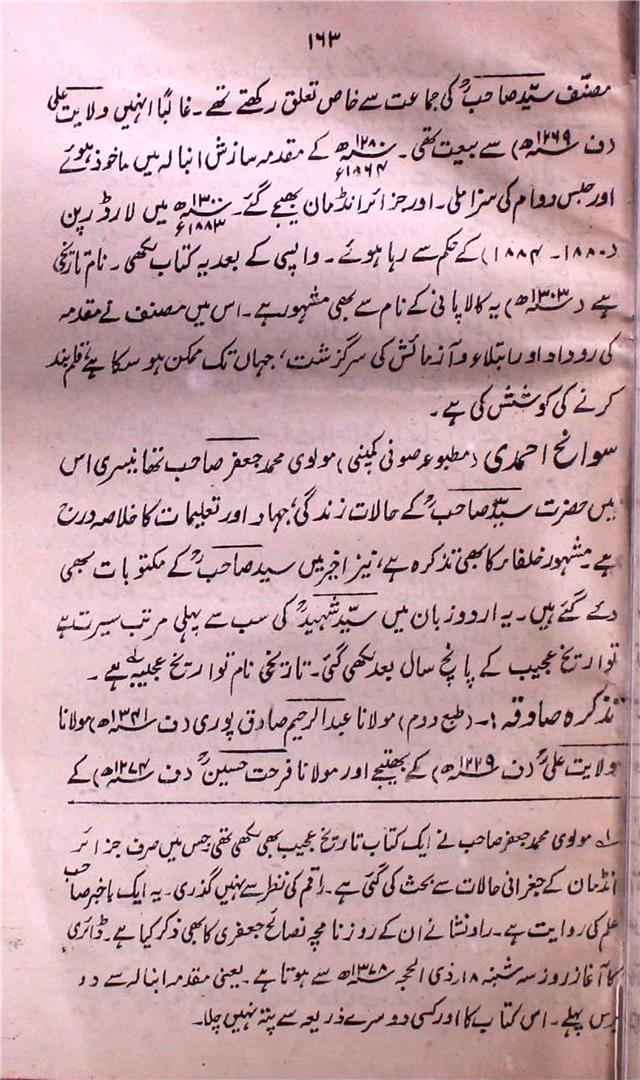 ۱۶۳
مصنّف سیّد صاحبؒ کی جماعت سے خاص تعلق رکھتے تھے۔ غالباً انہیں ولایت علی
(ف ۱۲۶۹ھ) سے بیعت تھی۔ ۱۲۸۰ھ ۱۸۶۴ء کے مقدمہ سازش انبالہ میں ماخوذ ہوئے
اور حبس دوام کی سزا ملی۔ اور جزائر انڈمان بھیجے گئے۔ ۱۳۰۰ھ ۱۸۸۳ء میں لارڈ رپن
(۱۸۸۰۔ ۱۸۸۴) کے حکم سے رہا ہوئے۔ واپسی کے بعد یہ کتاب لکھی۔ نام تاریخی
ہے (۱۳۰۳ھ) یہ کالا پانی کے نام سے بھی مشہور ہے۔ اس میں مصنف نے مقدمہ
کی روداد اور ابتلاء و آزمائش کی سرگزشت، جہاں تک ممکن ہو سکا ہے، قلم بند
کرنے کی کوشش کی ہے۔
سوانح احمدی (مطبوعہ صوفی کمپنی) مولوی محمد جعفر صاحب تھانیسری اس
میں حضرت سیّد صاحبؒ کے حالات زندگی، جہاد اور تعلیمات کا خلاصہ درج
ہے۔ مشہور خلفاء کا بھی تذکرہ ہے، نیز اخیر میں سید صاحبؒ کے مکتوبات بھی
دئے گئے ہیں۔ یہ اردو زبان میں سیّد شہیدؒ کی سب سے پہلی مرتب سیرت ہے
تواریخ عجیب کے پانچ سال بعد لکھی گئی۔ تاریخی نام تواریخ عجیبہ ہے۱۔
تذکرہ صادقہ :۔ (طبع دوم) مولانا عبدالرحیم صادق پوری (ف ۱۳۴۱ھ) مولانا
ولایت علیؒ (ف ۱۲۶۹ھ) کے بھتیجے اور مولانا فرحت حسینؒ (ف ۱۲۷۴ھ) کے
۱؎ مولوی محمد جعفر صاحب نے ایک کتاب تاریخ عجیب بھی لکھی تھی جس میں صرف جزائر
انڈمان کے جغرافی حالات سے بحث کی گئی ہے۔ راقم کی نظر سے نہیں گذری۔ یہ ایک باخبر صاحب
علم کی روایت ہے۔ راونشا نے ان کے روزنامچہ نصائح جعفری کا بھی ذکر کیا ہے۔ ڈائری
کا آغاز روز سہ شنبہ ۱۸ ذی الحجہ ۱۲۷۸ھ سے ہوتا ہے۔ یعنی مقدمہ انبالہ سے دو
برس پہلے۔ اس کتاب کا اور کسی دوسرے ذریعہ سے پتہ نہیں چلا۔